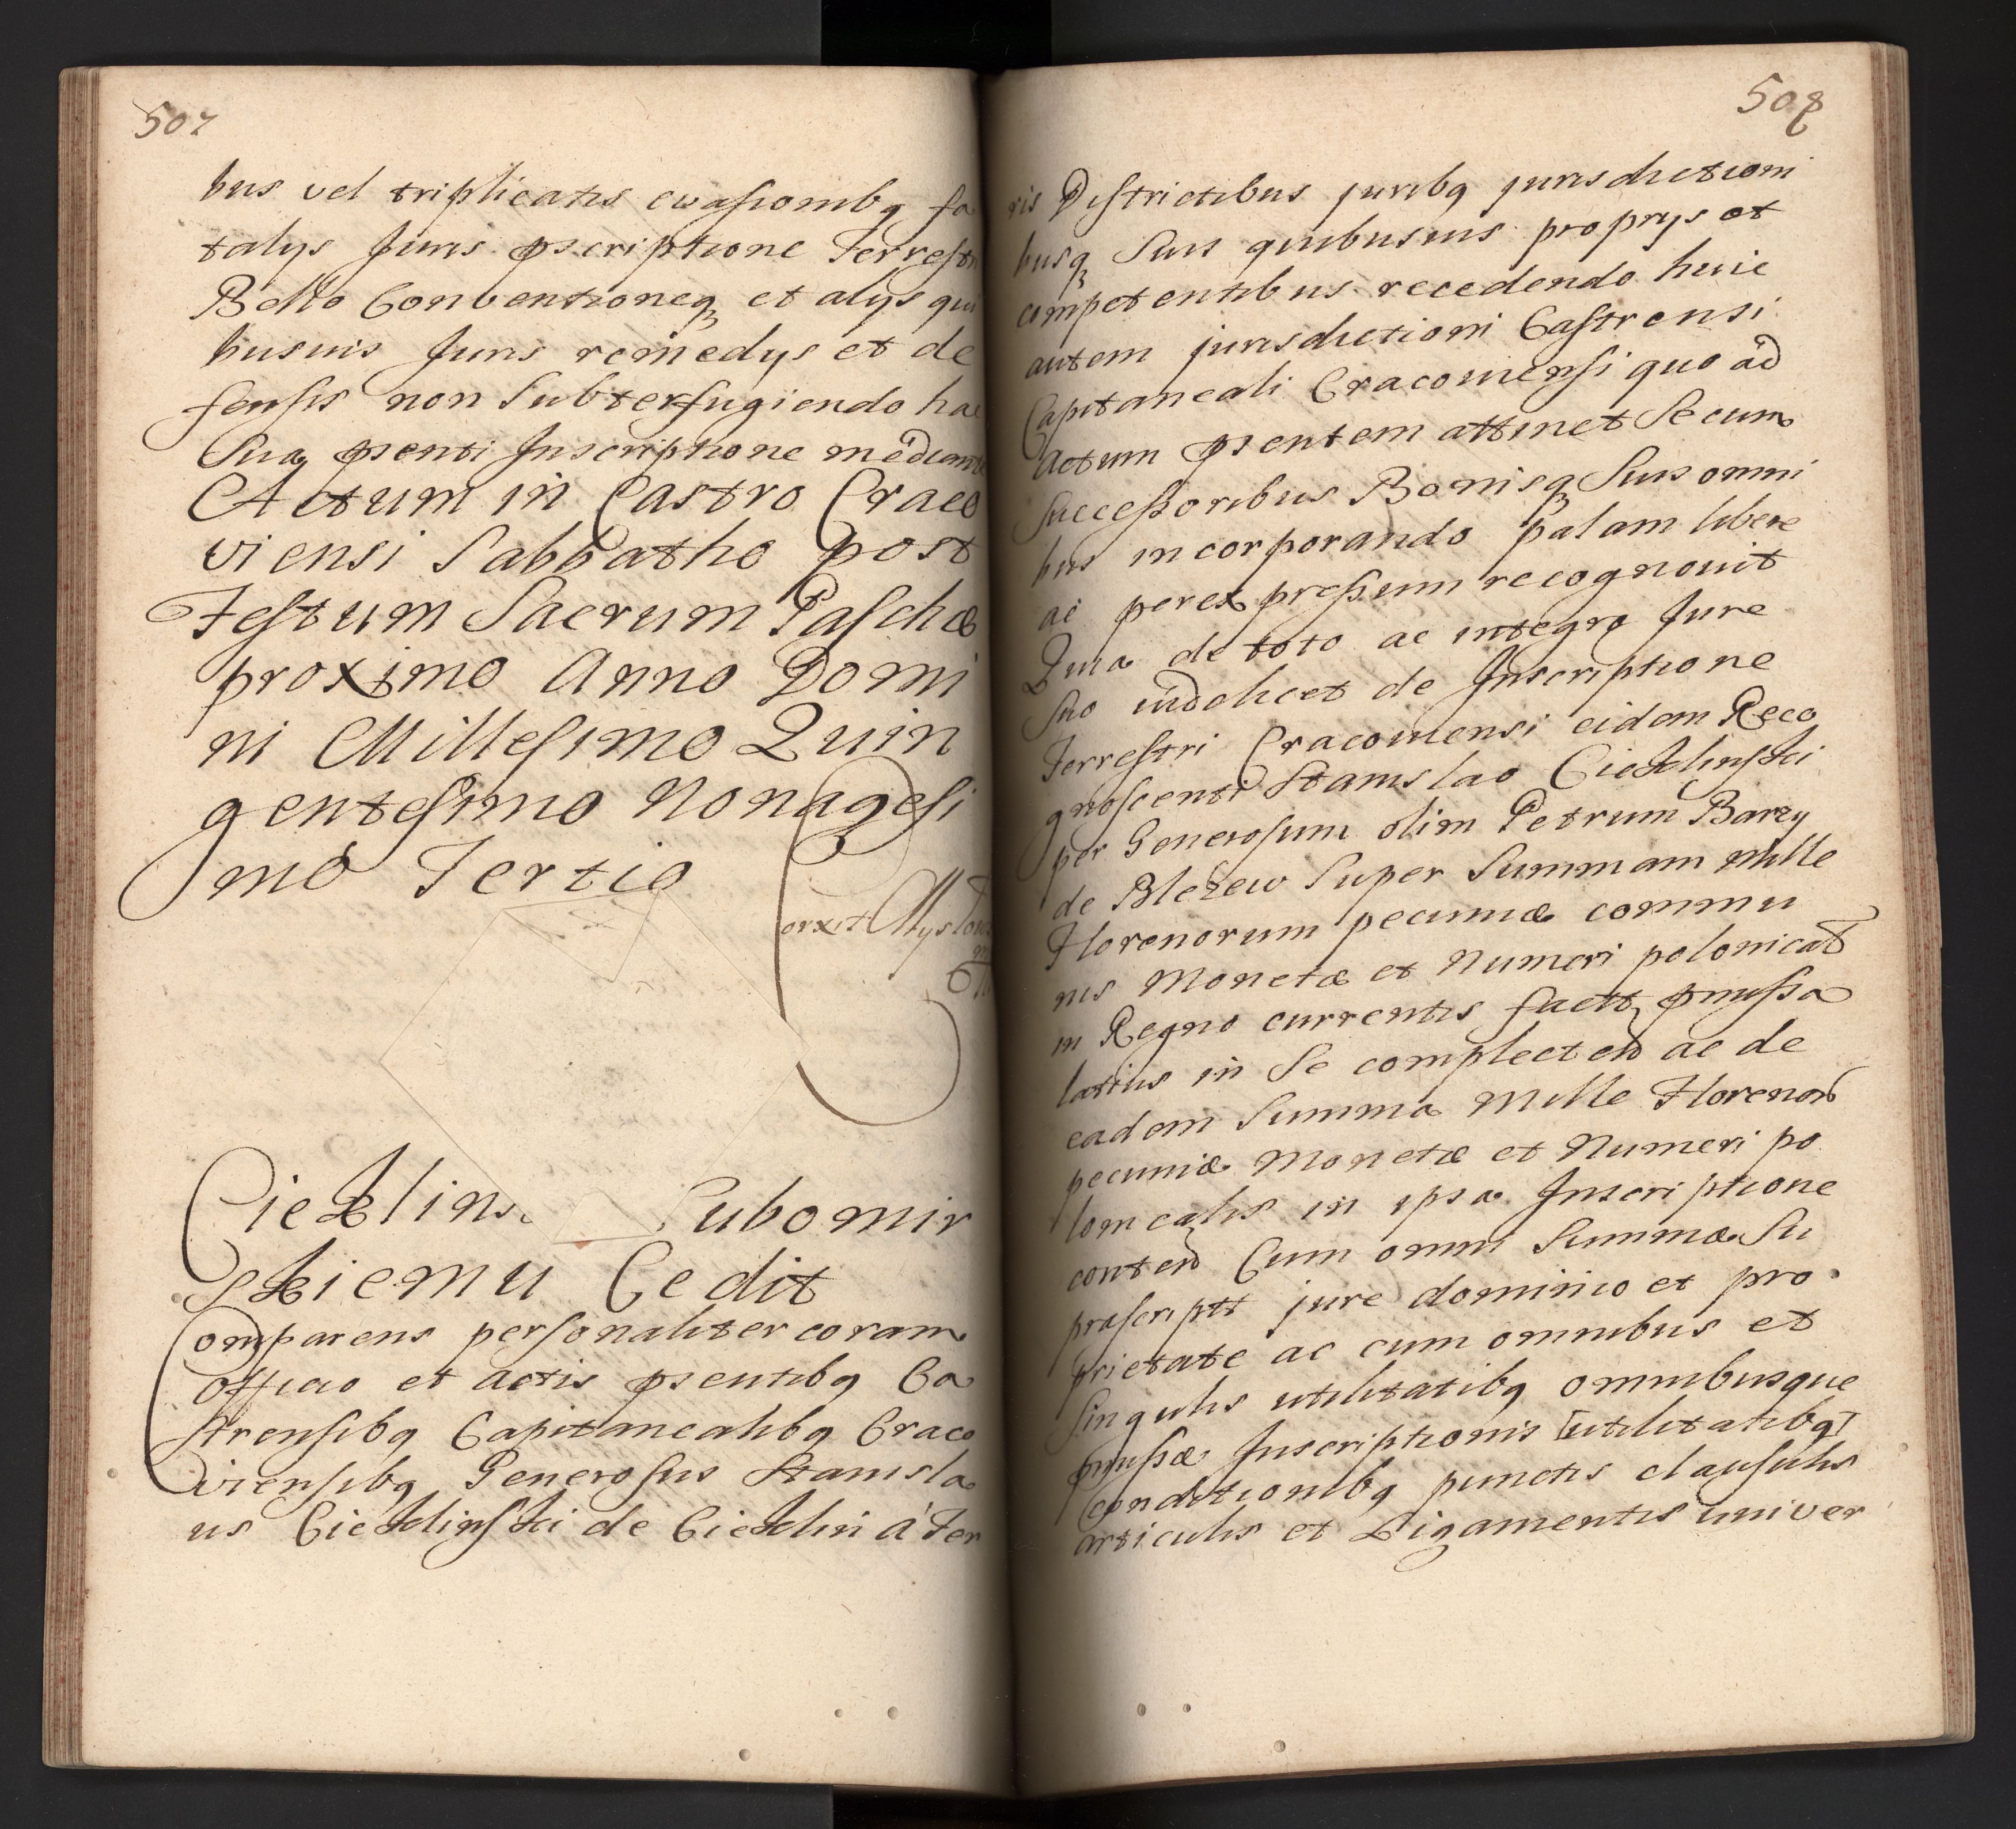 507
bus vel triplicatis evasionibq fa
talys Juris pscriptione Terrestri
Bello Conventioneq et alys qui
busuis Juris remedys et de
fensis non Subterfugiendo hac
Sua psenti Inscriptione mediante
Actum in Castro Craco
viensi Sabbatho post
Festum Sacrum Paschæ
proximo Anno Domi
ni Millesimo Quin
gentesimo Nonagesi
mo Tertio
Lubomir
skiemu Cedit
Comparens personaliter coram
Officio et actis psentibq Ca
strensibq Capitanealibq Craco
viensibq Generosus Stanisla
us Ciekliński de Cieklin á Ter
508
ris Districtibus juribq jurisdictioni
busq Suis quibusuis proprys et
competentibus recedendo huic
autem jurisdictioni Castrensi
Capitaneali Cracoviensi quo ad
Actum psentem attinet Se cum
Successoribus Bonisq Suis omni
bus incorporando palam libere
ac per expressum recognouit
Quia de toto ac integro Jure
Suo videlicet de Inscriptione
Terrestri Cracouiensi eidem Reco
gnoscenti Stanislao Cieklinski
per Generosum olim Petrum Barzy
de Blezew Super Summam Mille
Florenorum pecuniæ commu
nis Monetæ et Numeri polonicat
in Regno currentis factt pmissa
latius in Se complecten ac de
eadem Summa Mille Florenor
pecuniæ Monetæ et Numeri po
lonicalis in ipsa Inscriptione
conten Cum omni Summæ Su
prascriptt jure dominio et pro
prietate ac cum omnibus et
Singulis utilitatibq omnibusque
pmissæ Inscriptionis [utilitatibq]
conditionibq punctis clausulis
articulis et Ligamentis univer